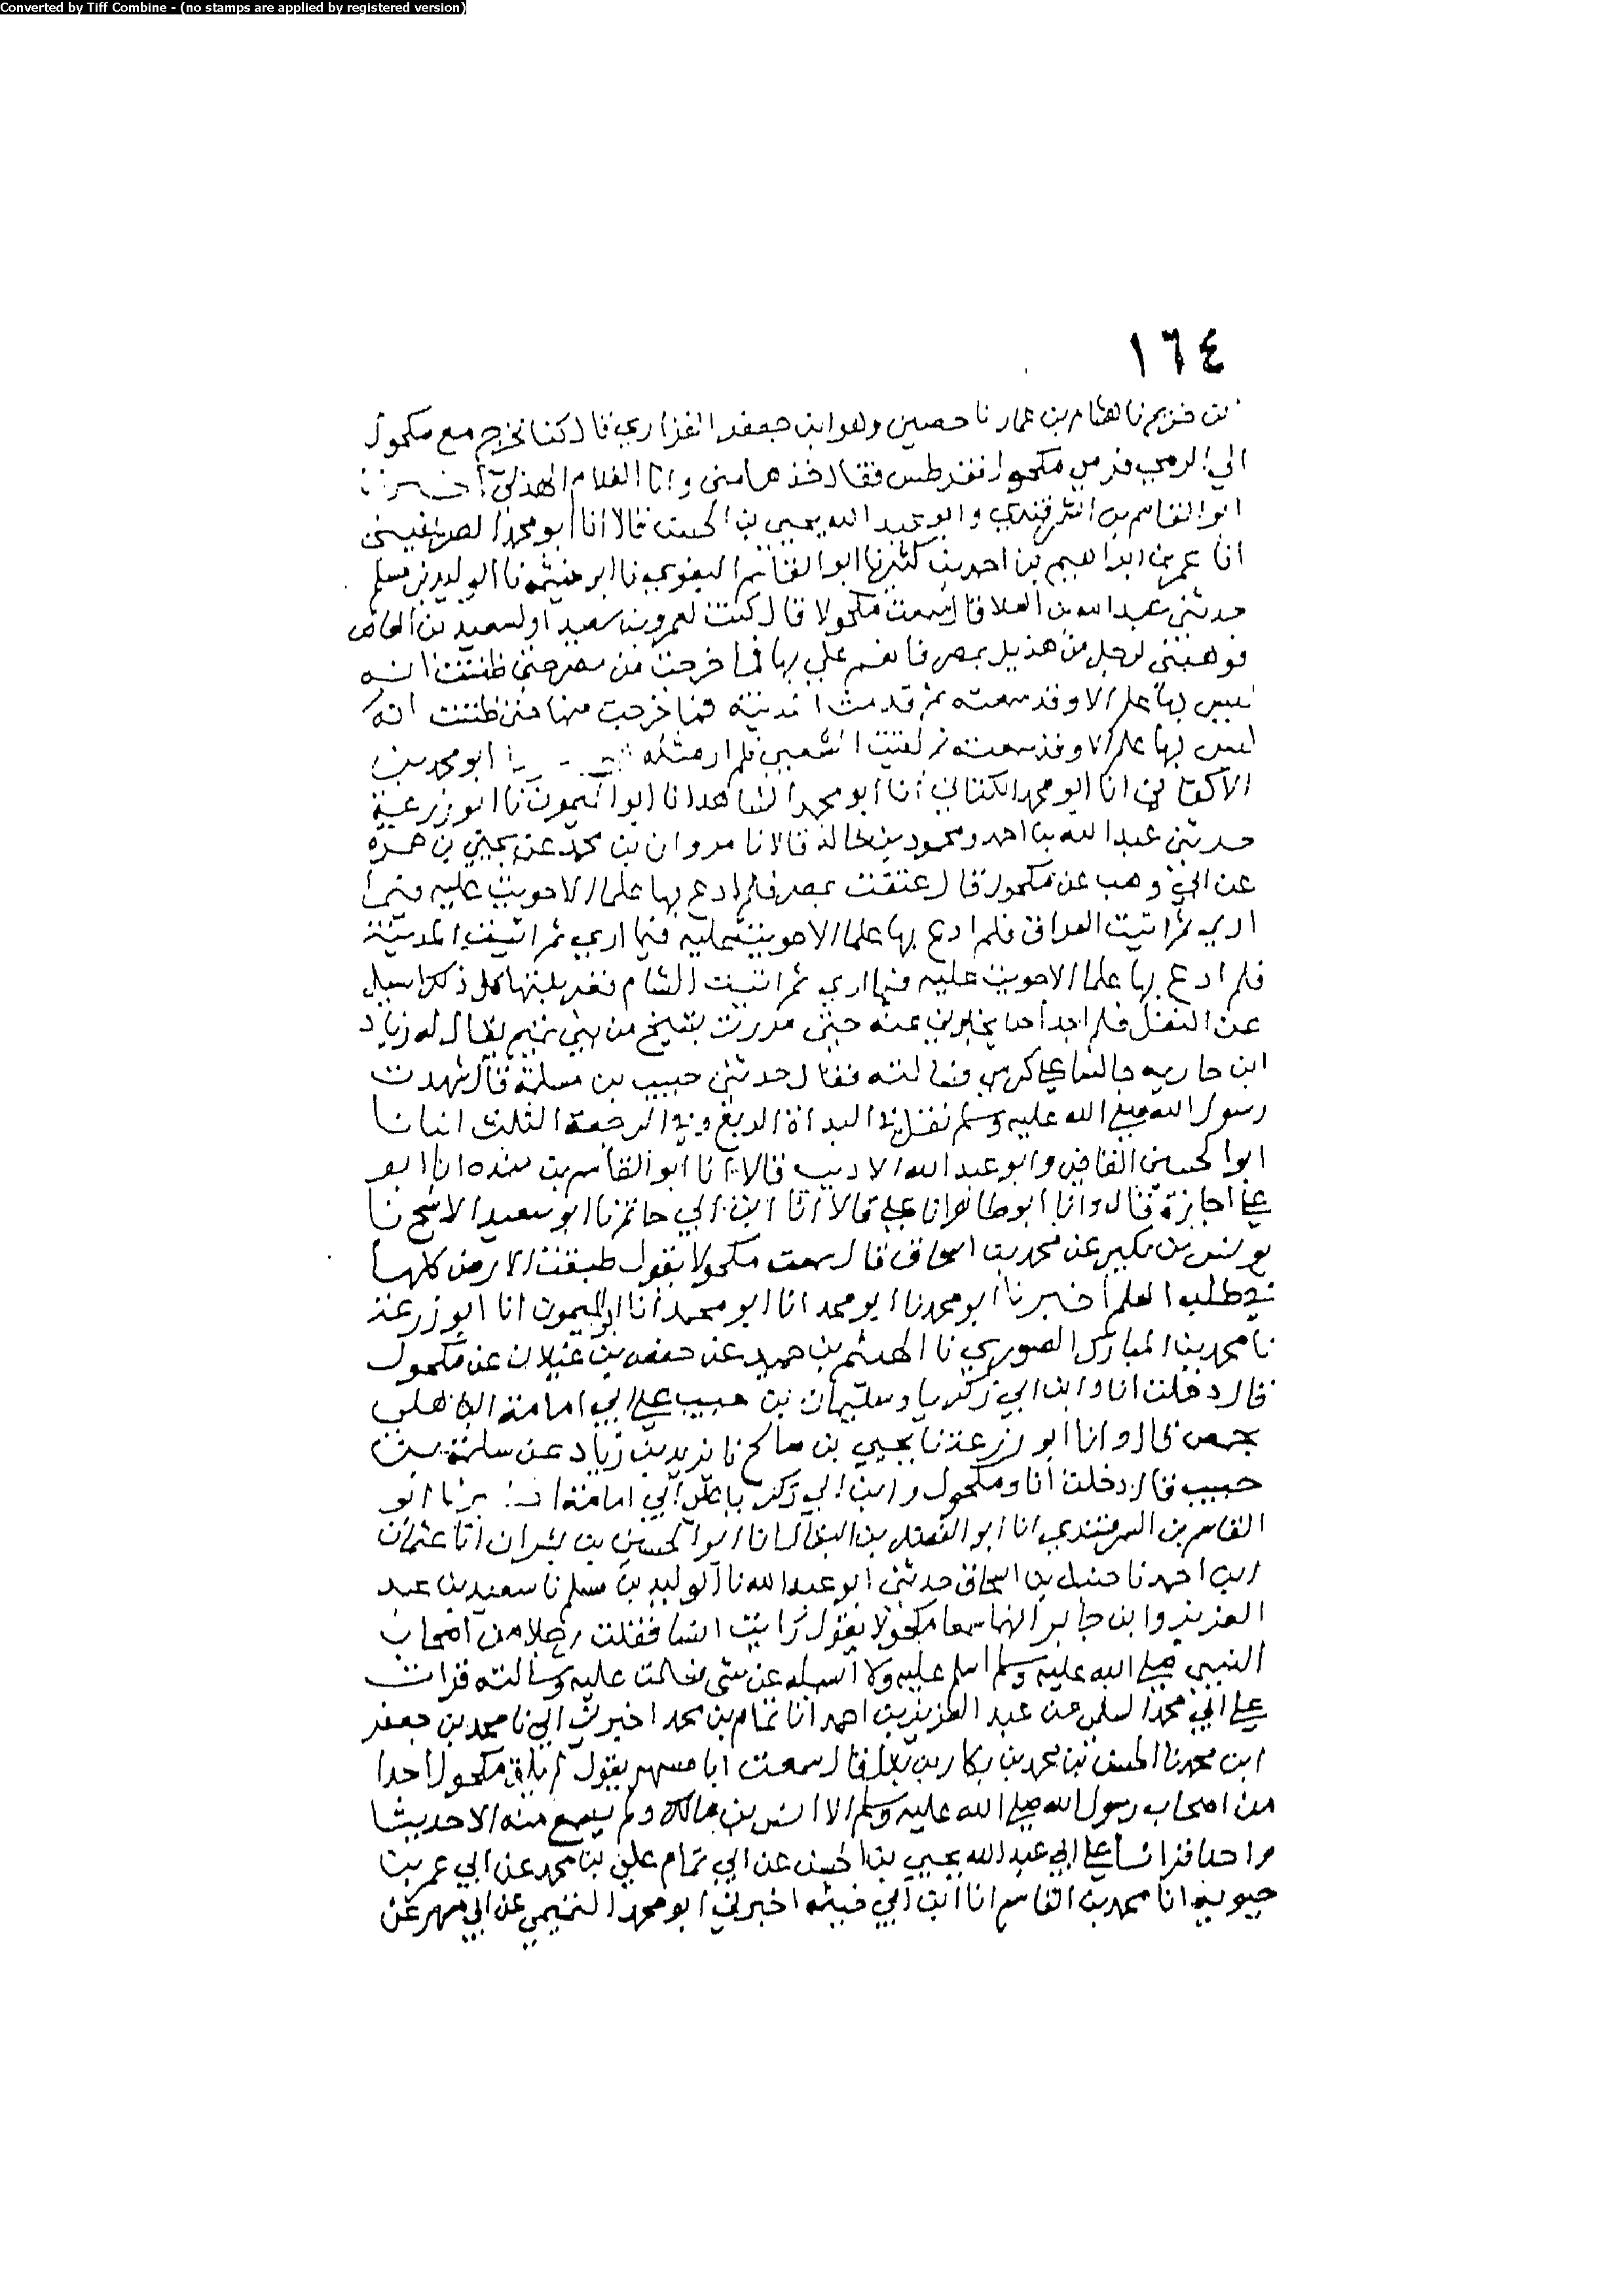 Converted by Tiff Combine - (no stamps are applied by registered version)
١٦٤
بن خريم نا هشام بن عمار نا حصين وهو ابن جعفر الفزاري قال كنا نخرج مع مكحول
الي الرمي فرمي مكحول فقرطس فقال خذها مني وانا الغلام الهذلي اخبرنا
ابو القاسم بن السمرقندي وابو عبد الله يحيي بن الحسن قالا انا ابو محمد الصريفيني
انا عمر بن ابراهيم بن احمد بن كثير نا ابو القاسم البغوي نا ابو خيثمه نا الوليد بن مسلم
حدثني عبد الله بن العلا قال سمعت مكحولا قال كنت لعمرو بن سعيد او لسعيد بن العاص
فوهبني لرجل من هذيل بمصر فانعم علي بها فما خرجت من مصر حتي ظننت انه
ليس بها علم الا وقد سمعته ثم قدمت المدينة فما خرجت منها حتي ظننت انه
ليس بها علم الا وقد سمعته ثم لقيت الشعبي فلم ار مثله ابو محمد بن
الاكفاني انا ابو محمد الكتاني انا ابو محمد الشاهد انا ابو الميمون نا ابو زرعة
حدثني عبد الله بن احمد ومحمود بن خالد قالا نا مروان بن محمد عن يحيي بن حمزه
عن ابي وهب عن مكحول قال عتقت بمصر فلم ادع بها علما الا حويت عليه فيما
اري ثم اتيت العراق فلم ادع بها علما الا حويت عليه فيما اري ثم اتيت المدينة
فلم ادع بها علما الا حويت عليه فيما اري ثم اتيت الشام فغربلتها كل ذلك اسيل
عن النفل فلم اجد احدا يخبرني عنه حتي مررت بشيخ من بني تميم يقال له زياد
ابن جاريه جالسا علي كرسي فسالته فقال حدثني حبيب بن مسلمة قال شهدت
رسول الله صلي الله عليه وسلم نفل في البداة الربع وفي الرجعة الثلث انبانا
ابو الحسين القاضي وابو عبد الله الاديب قالا انا ابو القاسم بن منده انا ابو
علي اجازة قال وانا ابو طاهر انا علي قالا انا ابن ابي حاتم نا ابو سعيد الاشج نا
يونس بن بكير عن محمد بن اسحاق قال سمعت مكحولا يقول طبقت الارض كلها
في طلب العلم اخبرنا ابو محمد نا ابو محمد انا ابو محمد انا ابو الميمون انا ابو زرعة
نا محمد بن المبارك الصوري نا الهيثم بن حميد عن حفص بن غيلان عن مكحول
قال دخلت انا وابن ابي زكريا وسليمان بن حبيب علي ابي امامة الباهلي
بحمص قال وانا ابو زرعة نا يحيي بن صالح نا يزيد بن زياد عن سليمان بن
حبيب قال دخلت انا ومكحول وابن ابي زكريا علي ابي امامة اخبرنا ابو
القاسم بن السمرقندي انا ابو الفضل بن البقال انا ابو الحسين بن بشران انا عثمان
ابن احمد نا حنبل بن اسحاق حدثني ابو عبد الله نا الوليد بن مسلم نا سعيد بن عبد
العزيز وابن جابر انهما سمعا مكحولا يقول رايت انسا فقلت رجلا من اصحاب
النبي صلي الله عليه وسلم اسلم عليه ولا اسيله عن شي فسلمت عليه وسالته قرات
علي ابي محمد السلمي عن عبد العزيز بن احمد انا تمام بن محمد اخبرني ابي نا محمد بن جعفر
ابن محمد نا الحسن بن محمد بن بكار بن بلال قال سمعت ابا مسهر يقول لم يلق مكحول احدا
من اصحاب رسول الله صلي الله عليه وسلم الا انس بن مالك ولم يسمع منه الا حديثا
واحدا قرانا علي ابي عبد الله يحيي بن الحسن عن ابي تمام علي بن محمد عن ابي عمر بن
حيويه انا محمد بن القاسم انا ابن ابي خيثمه اخبرني ابو محمد التميمي عن ابي مسهر عن